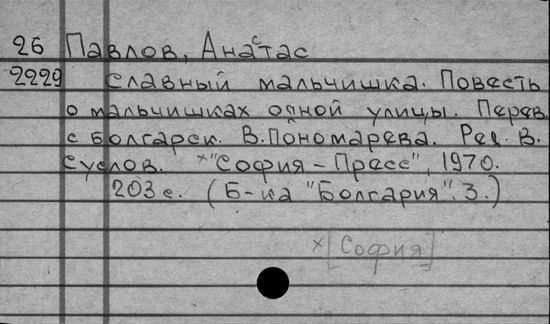 26 Павлов, Анастас
2229 Славный мальчишка. Повесть
о мальчишках одной улицы. Перев.
с болгарск. В. Пономарева. Ред. В.
Суслов. ×"София – Пресс", 1970.
203 с. (Б-ка "Болгария". 3.)
×[София]